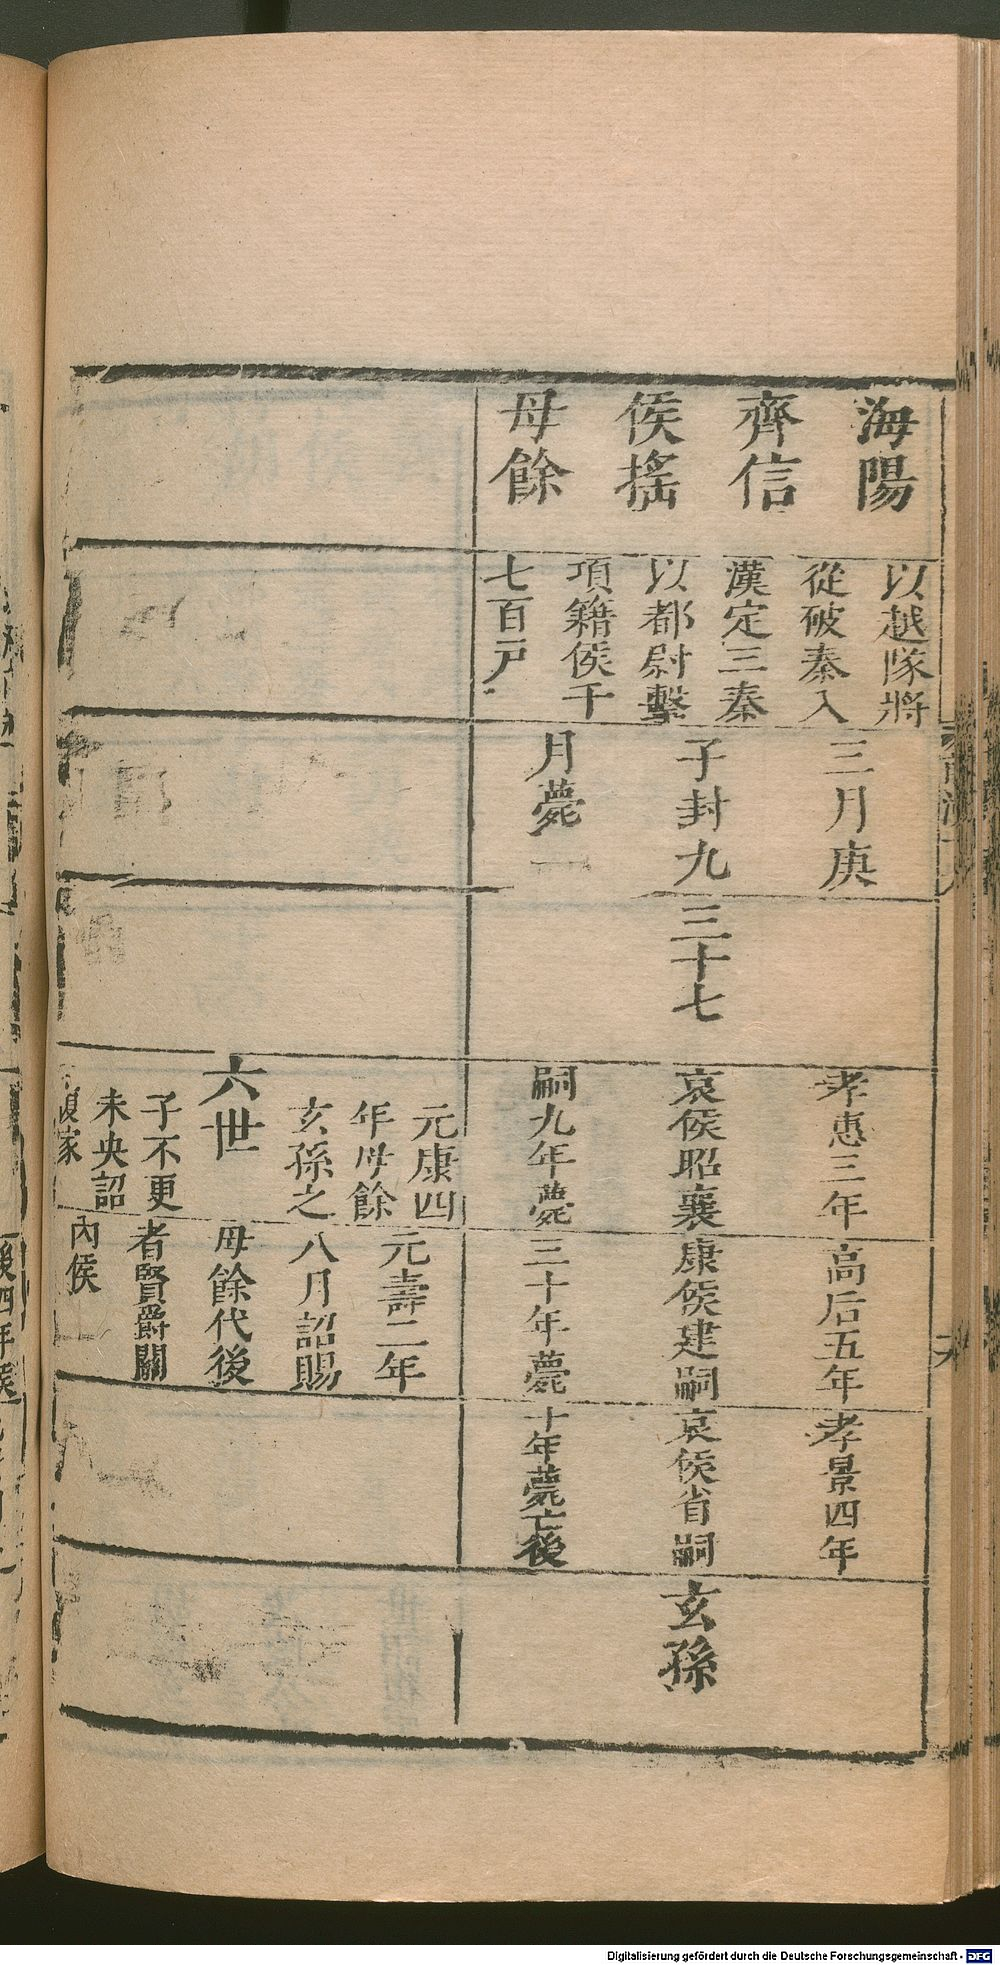 海陽
齊信
侯搖
母餘
以越隊將
從破秦入
漢定三秦
以都尉擊
項籍侯千
七百戸
三月庚
子封九
月薨
三十七
孝惠三年
哀侯昭襄
嗣九年薨
高后五年
康侯建嗣
三十年薨
孝景四年
哀侯省嗣
十年薨亡後
玄孫
元康四
年母餘
玄孫之
子不更
未央詔
復家
六世
元壽二年
八月詔賜
母餘代後
者賢爵關
內侯
Digitalisierung gefördert durch die Deutsche Forschungsgemeinschaft - DFG